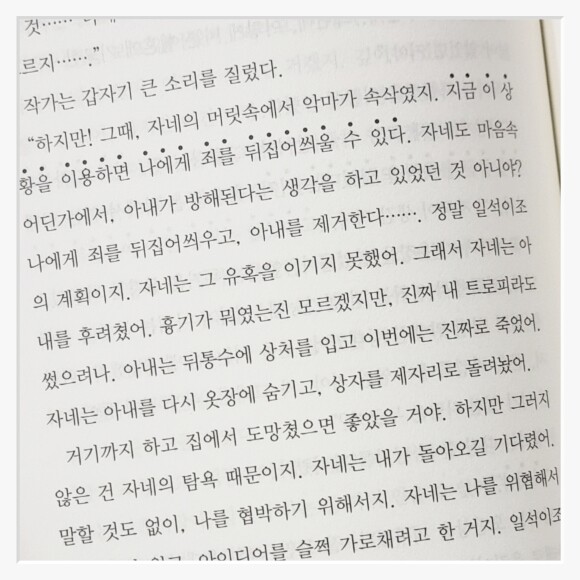 것……
르지……."
작가는 갑자기 큰 소리를 질렀다.
"하지만! 그때, 자네의 머릿속에서 악마가 속삭였지. 지금 이 상
황을 이용하면 나에게 죄를 뒤집어씌울 수 있다. 자네도 마음속
어딘가에서, 아내가 방해된다는 생각을 하고 있었던 것 아니야?
나에게 죄를 뒤집어씌우고, 아내를 제거한다……. 정말 일석이조
의 계획이지. 자네는 그 유혹을 이기지 못했어. 그래서 자네는 아
내를 후려쳤어. 흉기가 뭐였는진 모르겠지만, 진짜 내 트로피라도
썼으려나. 아내는 뒤통수에 상처를 입고 이번에는 진짜로 죽었어.
자네는 아내를 다시 옷장에 숨기고, 상자를 제자리로 돌려놨어.
거기까지 하고 집에서 도망쳤으면 좋았을 거야. 하지만 그러지
않은 건 자네의 탐욕 때문이지. 자네는 내가 돌아오길 기다렸어.
말할 것도 없이, 나를 협박하기 위해서지. 자네는 나를 위협해서
아이디어를 슬쩍 가로채려고 한 거지. 일석이조